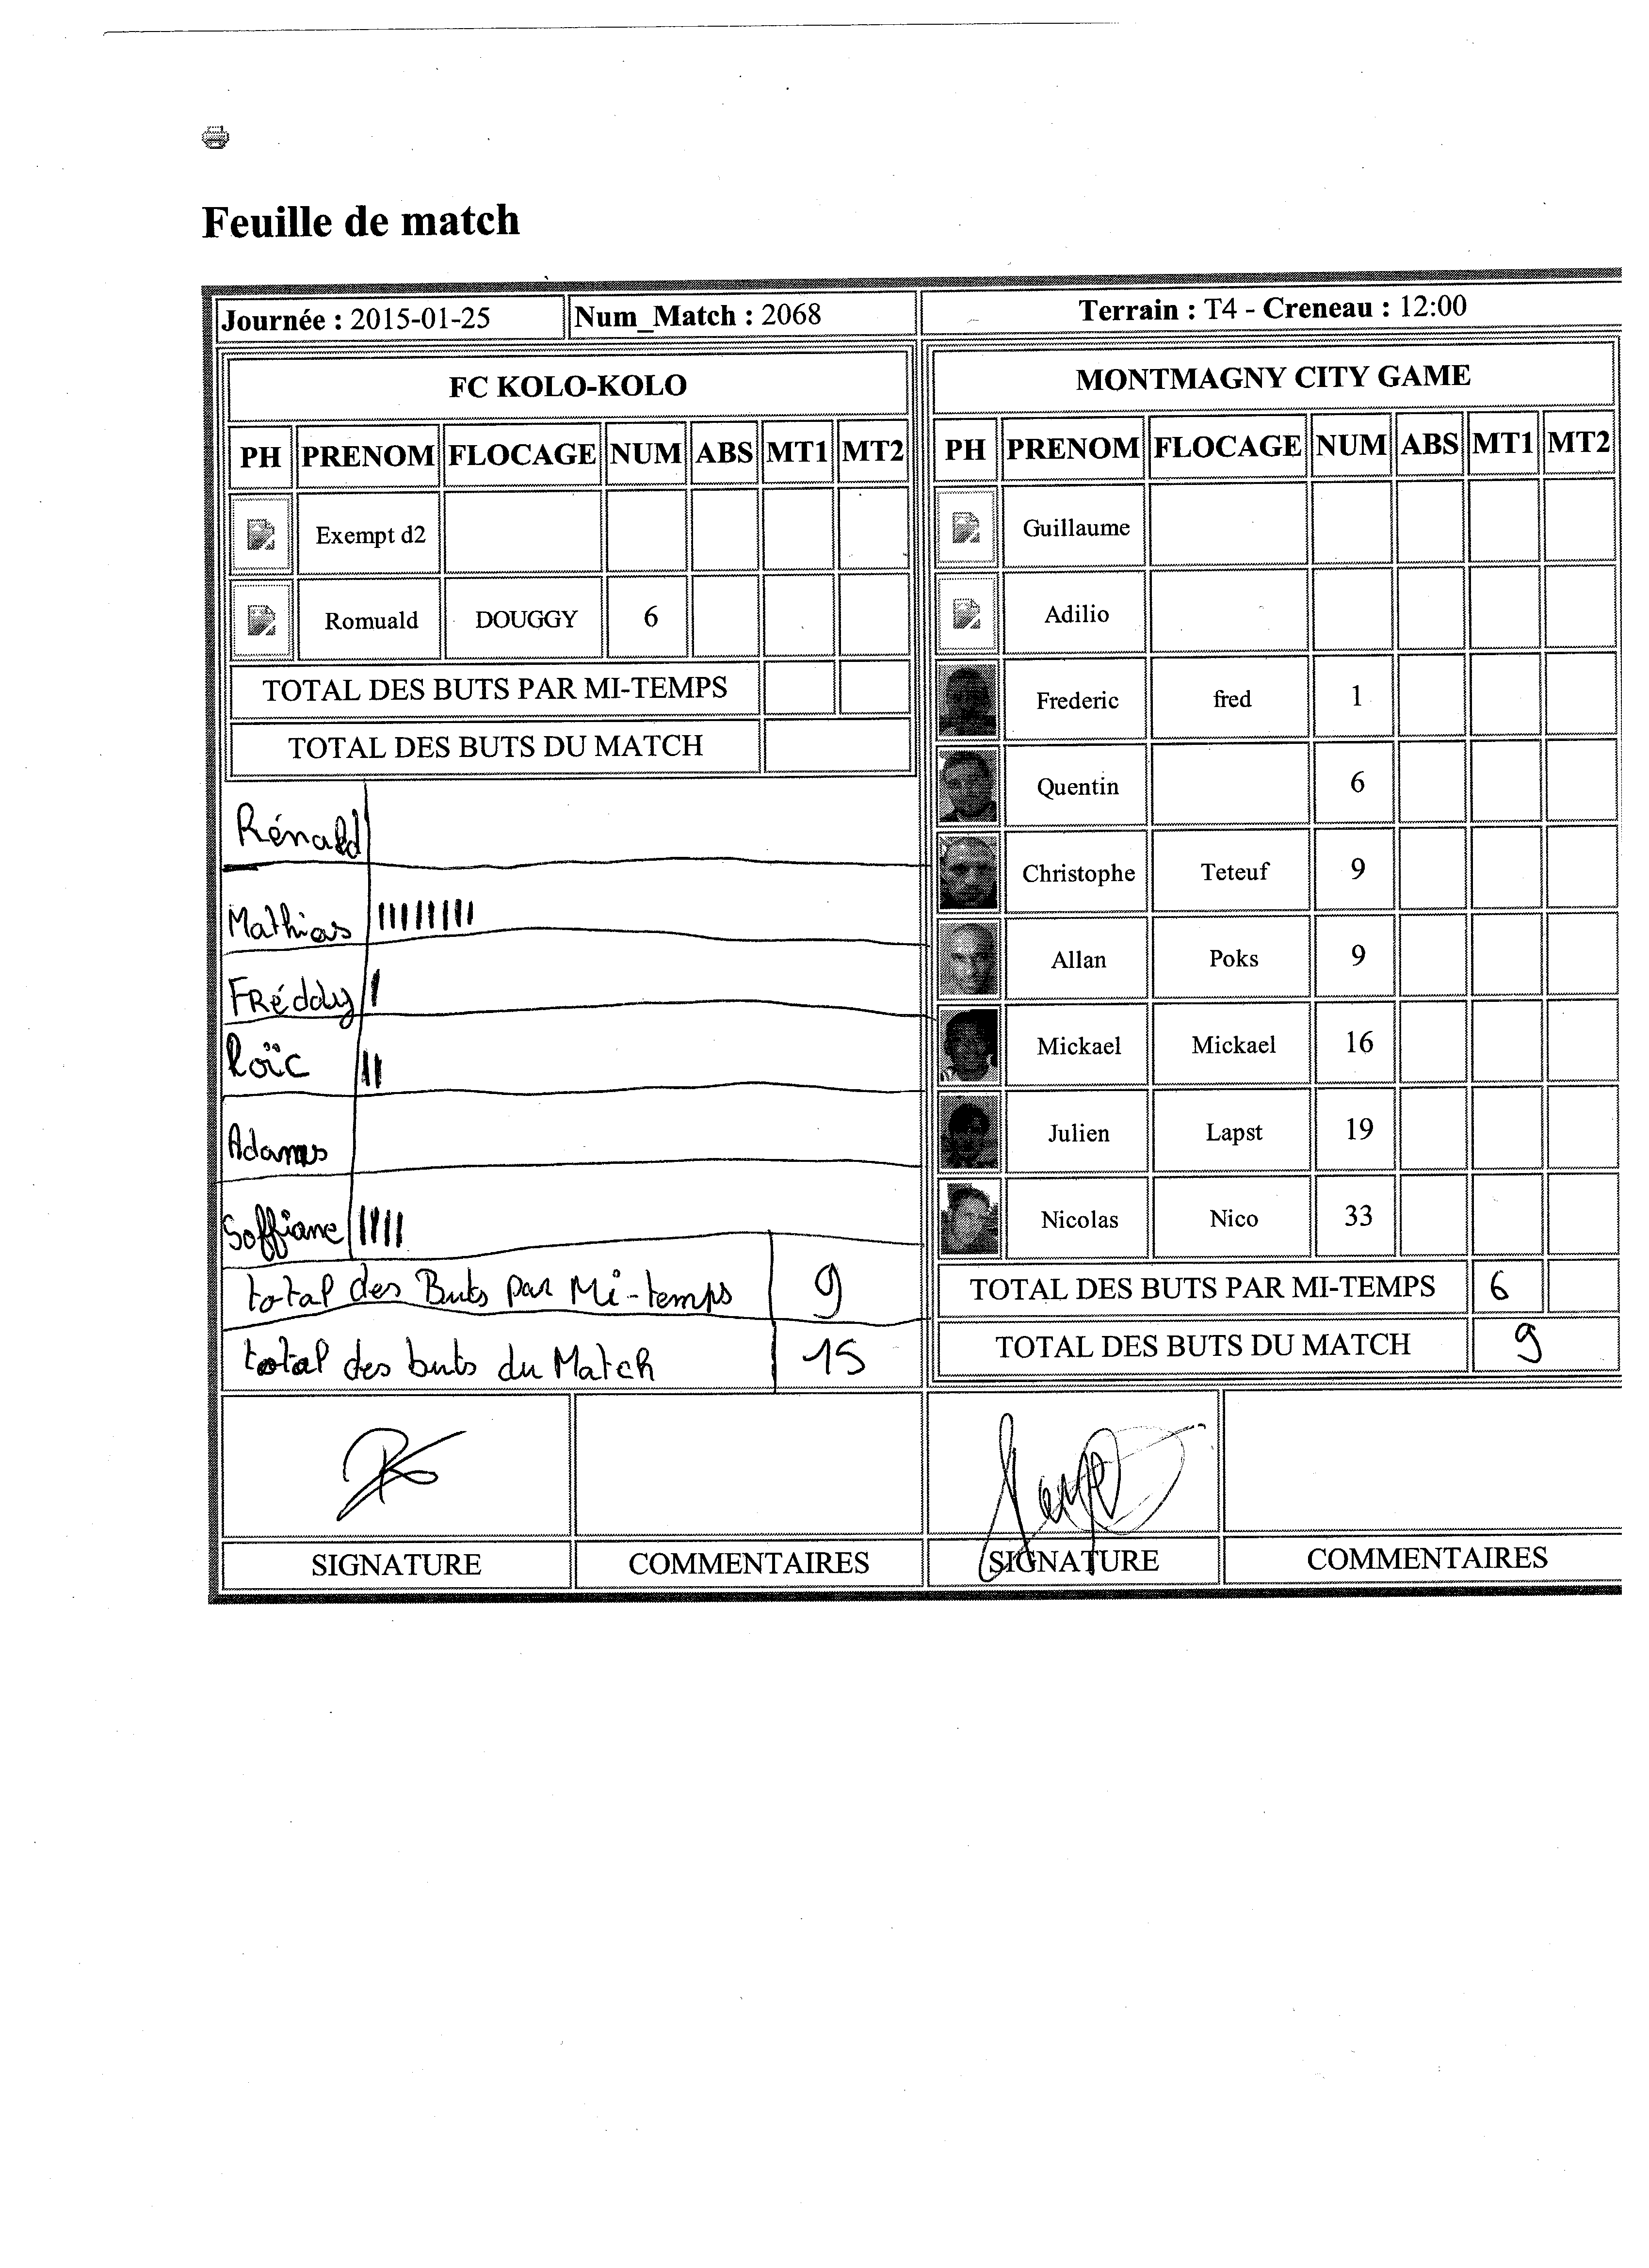 Feuille de match
Journée : 2015-01-25 Num_Match : 2068 Terrain : T4 - Creneau : 12:00
FC KOLO-KOLO
PH PRENOM FLOCAGE NUM ABS MT1 MT2
Exempt d2
Romuald DOUGGY 6
TOTAL DES BUTS PAR MI-TEMPS
TOTAL DES BUTS DU MATCH
Rénald
Mathias IIIIIIIII
FRéddy I
Loïc II
Adams
Soffiane IIII
total des Buts par Mi-temps 9
total des buts du Match 15
SIGNATURE COMMENTAIRES
MONTMAGNY CITY GAME
PH PRENOM FLOCAGE NUM ABS MT1 MT2
Guillaume
Adilio
Frederic fred 1
Quentin 6
Christophe Teteuf 9
Allan Poks 9
Mickael Mickael 16
Julien Lapst 19
Nicolas Nico 33
TOTAL DES BUTS PAR MI-TEMPS 6
TOTAL DES BUTS DU MATCH 9
SIGNATURE COMMENTAIRES